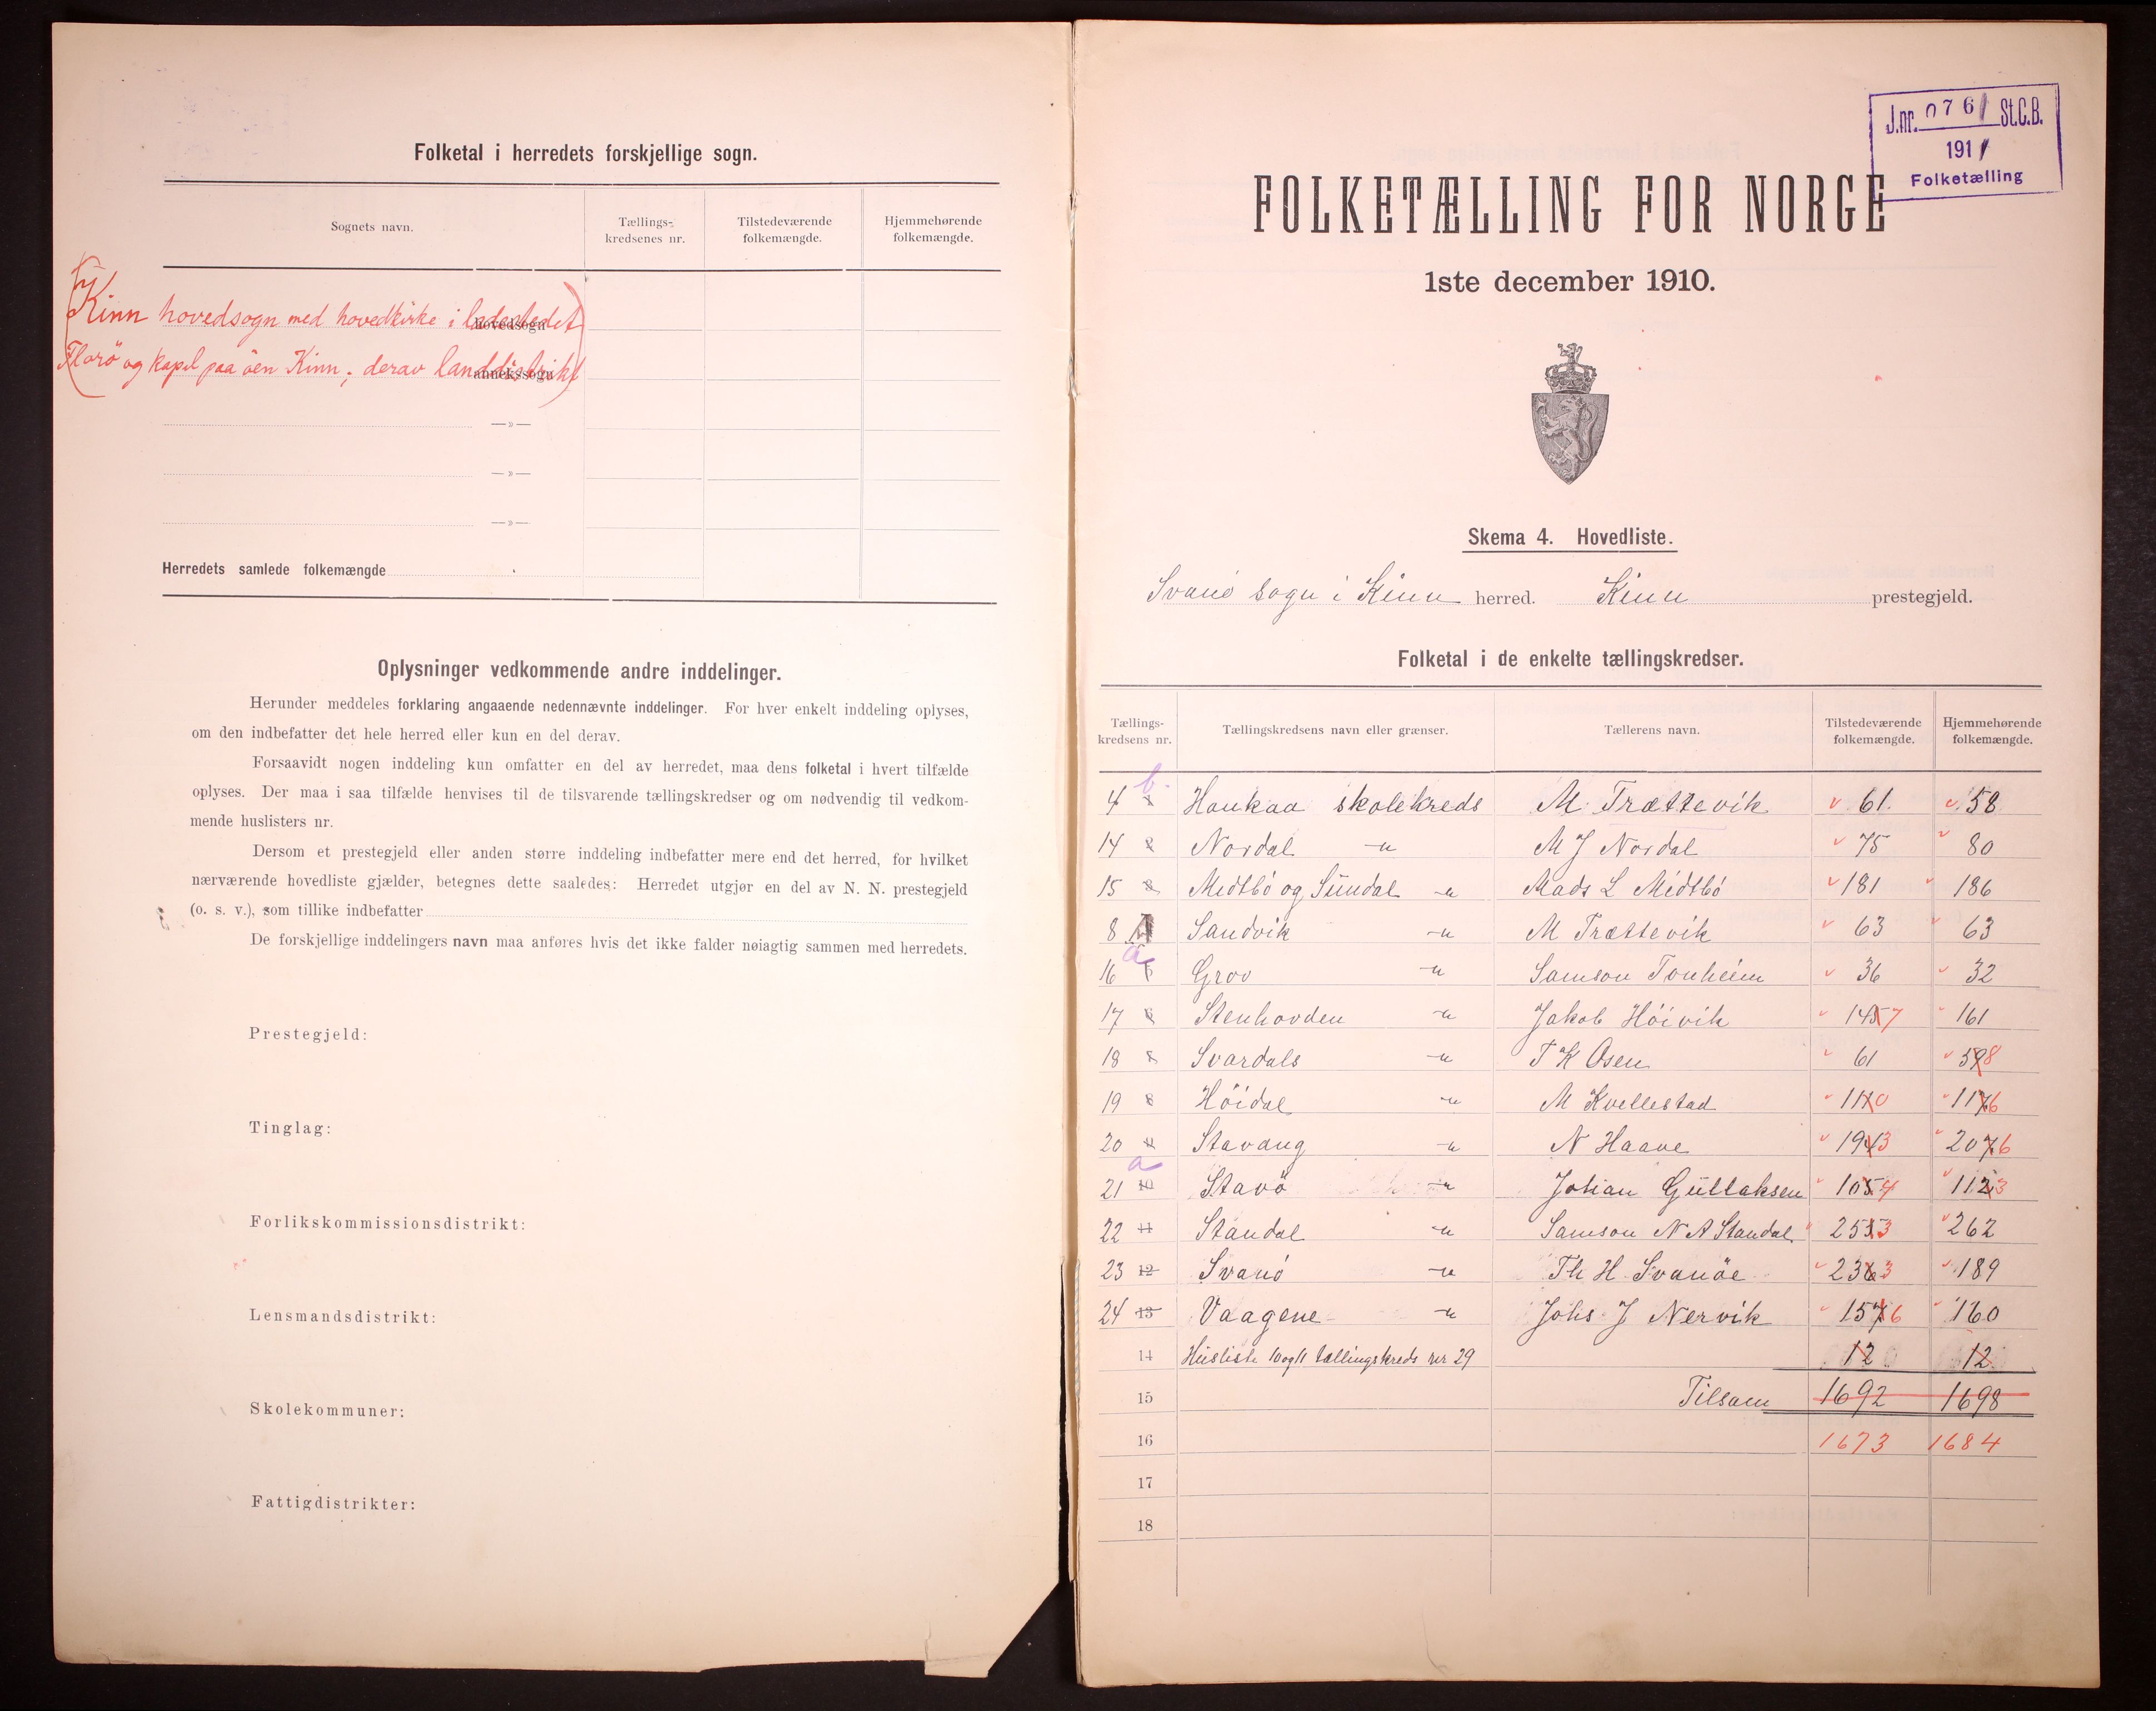 Folketal i herredets forskjellige sogn.
Sognets navn.
Tællings-
kredsenes nr.
Tilstedeværende
folkemængde.
Hjemmehørende
folkemængde.
Kinn hovedsogn med hovedkirke i ladestedet
hovedsogn
Florö og kapel paa öen Kinn; derav landdistrikt
annekssogn
—»—
—»—
—»—
Herredets samlede folkemængde
Oplysninger vedkommende andre inddelinger.
Herunder meddeles forklaring angaaende nedennævnte inddelinger. For hver enkelt inddeling oplyses,
om den indbefatter det hele herred eller kun en del derav.
Forsaavidt nogen inddeling kun omfatter en del av herredet, maa dens folketal i hvert tilfælde
oplyses. Der maa i saa tilfælde henvises til de tilsvarende tællingskredser og om nødvendig til vedkom-
mende huslisters nr.
Dersom et prestegjeld eller anden større inddeling indbefatter mere end det herred, for hvilket
nærværende hovedliste gjælder, betegnes dette saaledes: Herredet utgjør en del av N. N. prestegjeld
(o. s. v.), som tillike indbefatter
De forskjellige inddelingers navn maa anføres hvis det ikke falder nøiagtig sammen med herredets.
Prestegjeld:
Tinglag:
Forlikskommissionsdistrikt:
Lensmandsdistrikt:
Skolekommuner:
Fattigdistrikter:
J.nr. 0761 St.C.B.
1911
Folketælling
FOLKETÆLLING FOR NORGE
1ste december 1910.
Skema 4. Hovedliste.
Svanö sogn i Kinn herred. Kinn prestegjeld.
Folketal i de enkelte tællingskredser.
Tællings-
kredsens nr.
Tællingskredsens navn eller grænser.
Tællerens navn.
Tilstedeværende
folkemængde.
Hjemmehørende
folkemængde.
4 b. Haukaa skolekreds M. Trættevik 61 58
14 2 Nordal -"- M J Nordal 75 80
15 3 Midtbö og Sundal -"- Mads L Midtbö 181 186
8 Sandvik -"- M Trættevik 63 63
16 a Grov -"- Samson Tonheim 36 32
17 6 Stenhovden -"- Jakob Höivik 1457 161
18 7 Svardals -"- T K Osen 61 598
19 8 Höidal -"- M Kvellestad 1110 1176
20 Stavang -"- N Haave 1943 2076
21 a 10 Stavö -"- Johan Gullaksen 1054 1123
22 11 Standal -"- Samson N A Standal 2553 262
23 12 Svanö -"- Th H. Svanöe 2363 189
24 13 Vaagene -"- Johs J Nervik 1576 160
14 Husliste 10 og 11 tællingskreds nr 29 12 12
15 Tilsam 1692 1698
16 1673 1684
17
18